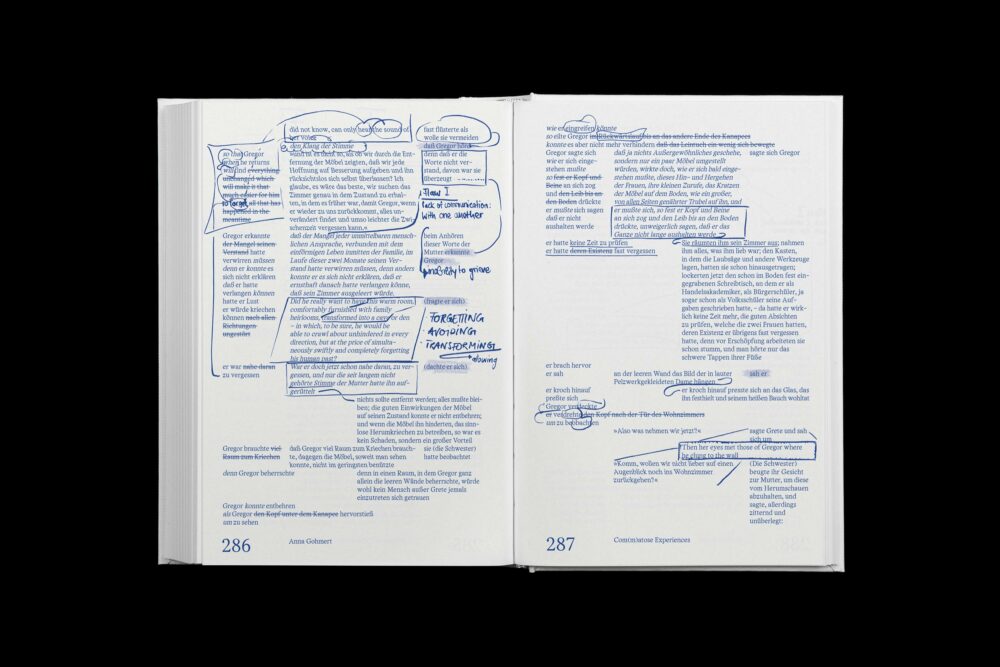 did not know, can only hear the sound of
her voice
den Klang der Stimme
wann ist es denn so, als ob wir durch die Ent-
fernung der Möbel zeigten, daß wir jede
Hoffnung auf Besserung aufgeben und ihn
rücksichtslos sich selbst überlassen? Ich
glaube, es wäre das beste, wir suchen das
Zimmer genau in dem Zustand zu erhal-
ten, in dem es früher war, damit Gregor, wenn
er wieder zu uns zurückkommt, alles un-
verändert findet und umso leichter die Zwi-
schenzeit vergessen kann.«
so that Gregor
when he returns
will find everything
unchanged which
will make it that
much easier for him
to forget all that has
happened in the
meantime
fast flüsterte als
wolle sie vermeiden
daß Gregor höre
denn daß er die
Worte nicht ver-
stand, davon war sie
überzeugt
Flaw I
lack of communication:
with one another
Gregor erkannte
der Mangel seinen
Verstand hatte
verwirren müssen
denn er konnte es
sich nicht erklären
daß er hatte
verlangen können
hatte er Lust
er würde kriechen
können nach allen
Richtungen
ungestört
daß der Mangel jeder unmittelbaren mensch-
lichen Ansprache, verbunden mit dem
einförmigen Leben inmitten der Familie, im
Laufe dieser zwei Monate seinen Ver-
stand hatte verwirren müssen, denn anders
konnte er es sich nicht erklären, daß er
ernsthaft danach hatte verlangen können,
daß sein Zimmer ausgeleert würde.
Did he really want to have this warm room,
comfortably furnished with family
heirlooms, transformed into a cave or den
– in which, to be sure, he would be
able to crawl about unhindered in every
direction, but at the price of simulta-
neously swiftly and completely forgetting
his human past?
beim Anhören
dieser Worte der
Mutter erkannte
Gregor
inability to grieve
(fragte er sich)
FORGETTING
AVOIDING
TRANSFORMING
allowing
er war nahe daran
zu vergessen
War er doch jetzt schon nahe daran, zu ver-
gessen, und nur die seit langem nicht
gehörte Stimme der Mutter hatte ihn auf-
gerüttelt
(dachte er sich)
nichts sollte entfernt werden; alles mußte blei-
ben; die guten Einwirkungen der Möbel
auf seinen Zustand konnte er nicht entbehren;
und wenn die Möbel ihn hinderten, das sinn-
lose Herumkriechen zu betreiben, so war es
kein Schaden, sondern ein großer Vorteil
Gregor brauchte viel
Raum zum Kriechen
daß Gregor viel Raum zum Kriechen brauch-
te, dagegen die Möbel, soweit man sehen
konnte, nicht im geringsten benützte
sie (die Schwester)
hatte beobachtet
denn Gregor beherrschte
denn in einen Raum, in dem Gregor ganz
allein die leeren Wände beherrschte, würde
wohl kein Mensch außer Grete jemals
einzutreten sich getrauen
Gregor konnte entbehren
als Gregor den Kopf unter dem Kanapee hervorstieß
um zu sehen
286
Anna Gohmert
wie er eingreifen könnte
so eilte Gregor im Rückwärtslauf bis an das andere Ende des Kanapees
konnte es aber nicht mehr verhindern daß das Leintuch ein wenig sich bewegte
Gregor sagte sich
wie er sich einge-
stehen mußte
so fest er Kopf und
Beine an sich zog
und den Leib bis an
den Boden drückte
er mußte sich sagen
daß er nicht
aushalten werde
daß ja nichts Außergewöhnliches geschehe,
sondern nur ein paar Möbel umgestellt
würden, wirkte doch, wie er sich bald einge-
stehen mußte, dieses Hin- und Hergehen
der Frauen, ihre kleinen Zurufe, das Kratzen
der Möbel auf dem Boden, wie ein großer,
von allen Seiten genährter Trubel auf ihn, und
er mußte sich, so fest er Kopf und Beine
an sich zog und den Leib bis an den Boden
drückte, unweigerlich sagen, daß er das
Ganze nicht lange aushalten werde
sagte sich Gregor
er hatte keine Zeit zu prüfen
er hatte deren Existenz fast vergessen
Sie räumten ihm sein Zimmer aus; nahmen
ihm alles, was ihm lieb war; den Kasten,
in dem die Laubsäge und andere Werkzeuge
lagen, hatten sie schon hinausgetragen;
lockerten jetzt den schon im Boden fest ein-
gegrabenen Schreibtisch, an dem er als
Handelsakademiker, als Bürgerschüler, ja
sogar schon als Volksschüler seine Auf-
gaben geschrieben hatte, – da hatte er wirk-
lich keine Zeit mehr, die guten Absichten
zu prüfen, welche die zwei Frauen hatten,
deren Existenz er übrigens fast vergessen
hatte, denn vor Erschöpfung arbeiteten sie
schon stumm, und man hörte nur das
schwere Tappen ihrer Füße
er brach hervor
er sah
an der leeren Wand das Bild der in lauter
Pelzwerk gekleideten Dame hängen
sah er
er kroch hinauf
preßte sich
er kroch hinauf presste sich an das Glas, das
ihn festhielt und seinem heißen Bauch wohltat
Gregor verdeckte
er verdrehte den Kopf nach der Tür des Wohnzimmers
um zu beobachten
»Also was nehmen wir jetzt?«
sagte Grete und sah
sich um
Then her eyes met those of Gregor where
he clung to the wall
»Komm, wollen wir nicht lieber auf einen
Augenblick noch ins Wohnzimmer
zurückgehen?«
(Die Schwester)
beugte ihr Gesicht
zur Mutter, um diese
vom Herumschauen
abzuhalten, und
sagte, allerdings
zitternd und
unüberlegt:
287
Com(m)atose Experiences